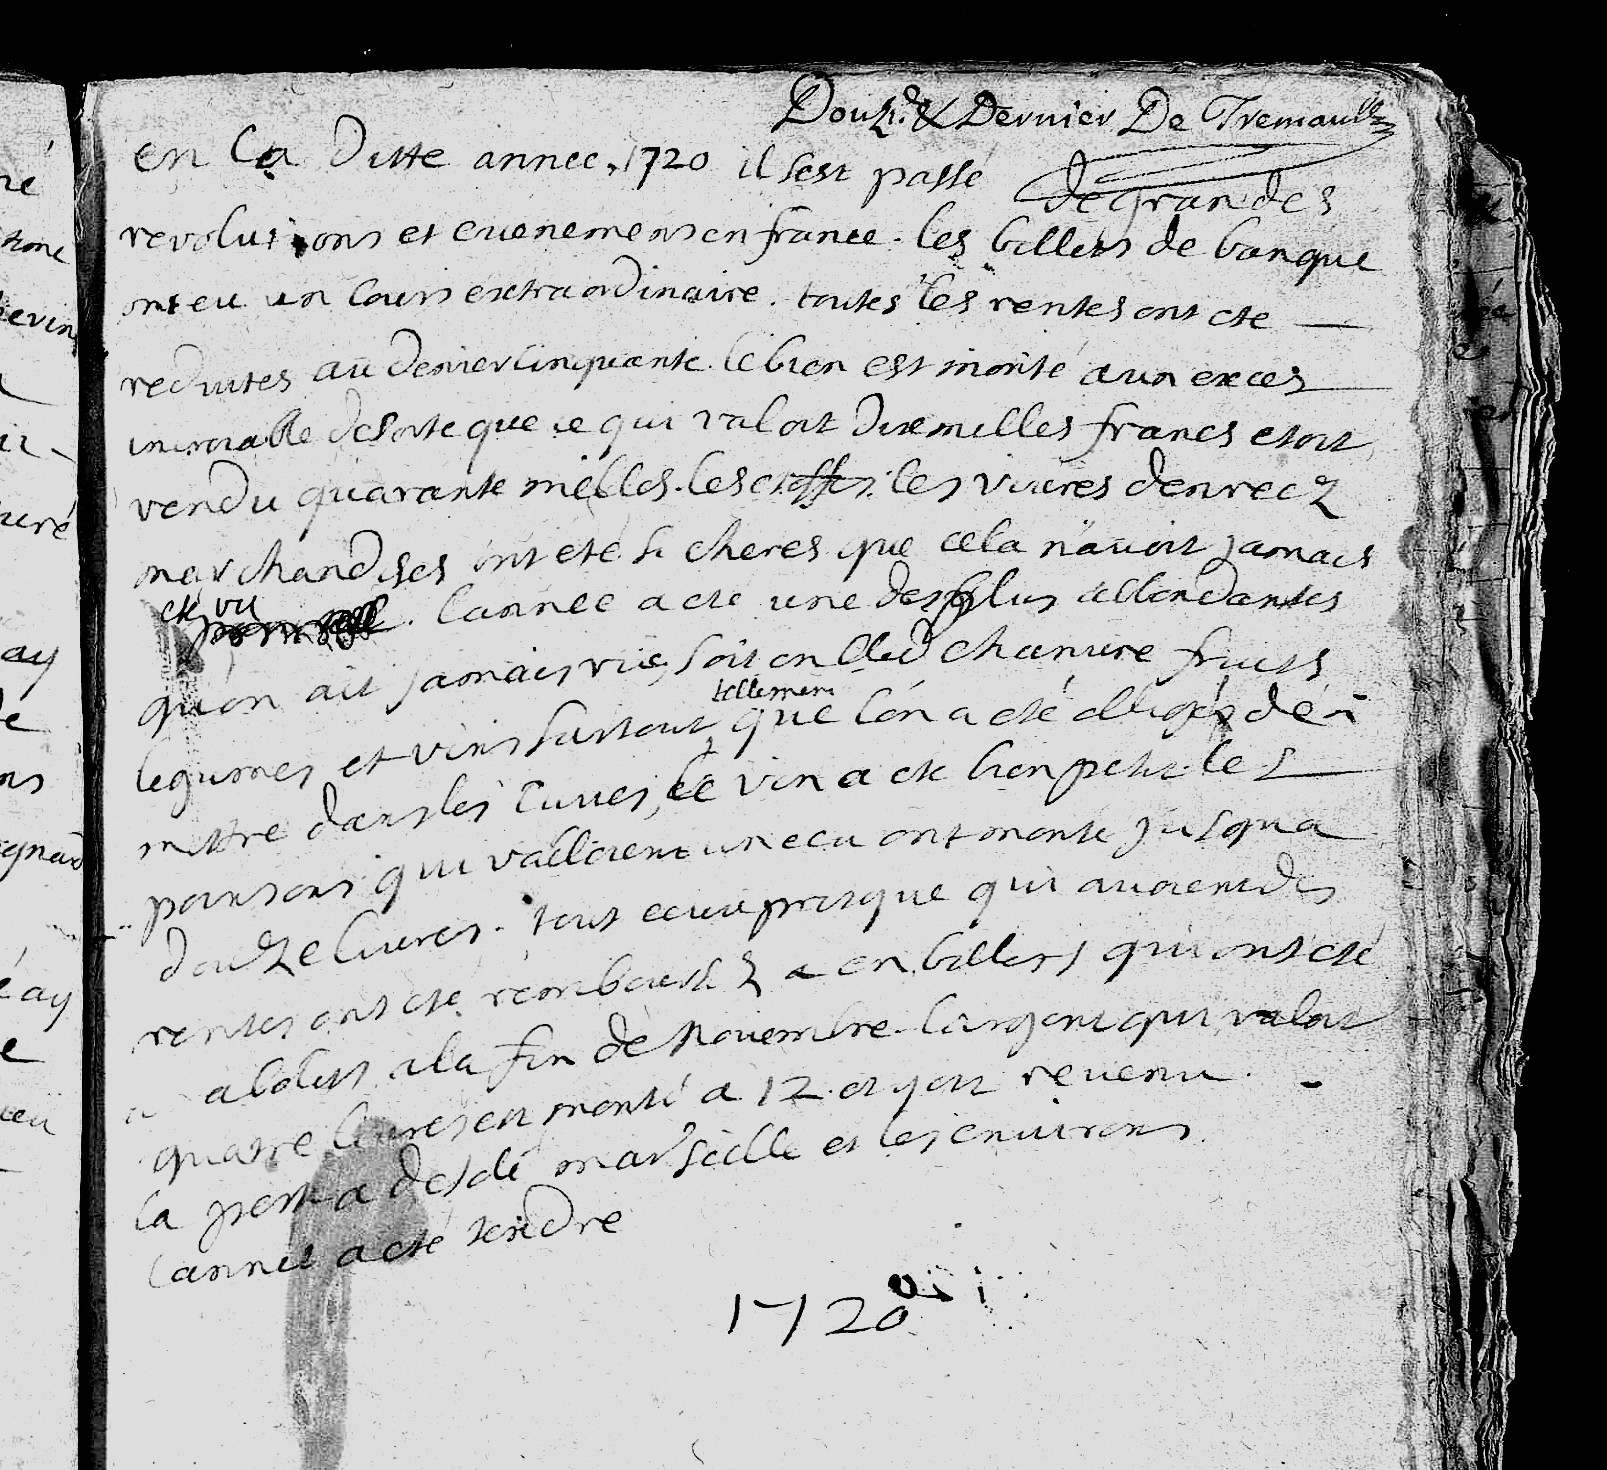 Douz.e & Dernier De Tremault
en la ditte annee 1720 il sest passé de grandes
revolutions et evenemens en france. les billets de banque
ont eu un cours extraordinaire. toutes les rentes ont ete
reduites au denier cinquante. le bien est monté a un exces
incroiable de sorte que ce qui valoit dix milles francs etoit
vendu quarante milles. les etoffes. les vivres denreez
marchandises ont eté si cheres que cela n'avoit jamais
eté vu
. l'annee a eté une des plus abbondantes
qu'on ait jamais vüe, soit en bled chanvre fruits
tellement
legumes et vins surtout que l'on a eté obligé de
mettre dans les cuves, le vin a eté bien petit. les
poinsons qui valloient un ecu ont monté jusqu a
douze livres. tout ceux presque qui avoient des
rentes ont eté remboursez en billets qui ont eté
abolis a la fin de Novembre. l'argent qui valoit
quatre livres est monté a 12. et y est revenu.
la peste a desolé marseille et les environs
l'année a eté tendre
1720
né
evin
curé
ay
é ay